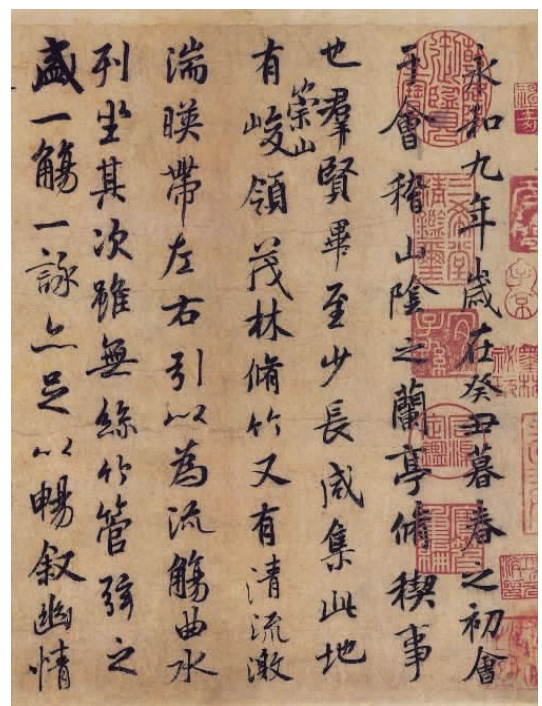 永和九年歲在癸丑暮春之初會
于會稽山陰之蘭亭脩稧事
也羣賢畢至少長咸集此地
有崇山峻領茂林脩竹又有清流激
湍暎帶左右引以為流觴曲水
列坐其次雖無絲竹管弦之
盛一觴一詠亦足以暢叙幽情
三希堂精鑑璽
宜子孫